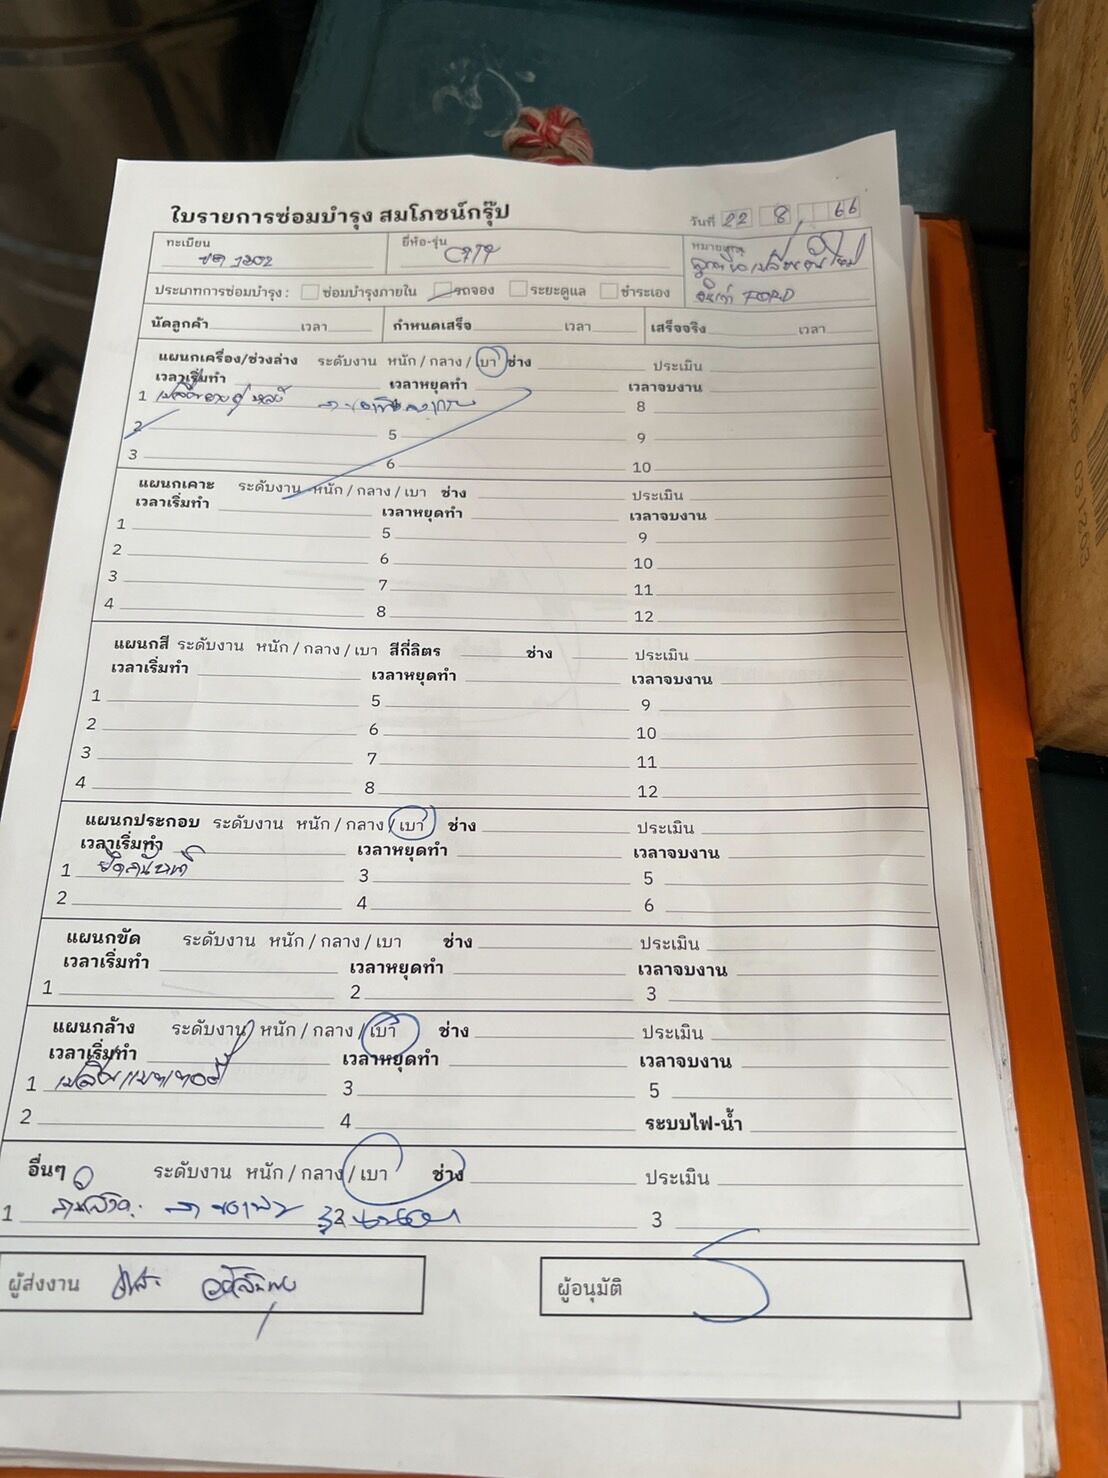 ใบรายการซ่อมบำรุง สมโภชน์กรุ๊ป
วันที่ 22 8 66
ทะเบียน ยี่ห้อ-รุ่น หมายเหตุ
1202 CITY
FORD
ประเภทการซ่อมบำรุง : ซ่อมบำรุงภายใน รถจอง ระยะดูแล ชำระเอง
นัดลูกค้า เวลา กำหนดเสร็จ เวลา เสร็จจริง เวลา
แผนกเครื่อง/ช่วงล่าง ระดับงาน หนัก / กลาง / เบา ช่าง ประเมิน
เวลาเริ่มทำ เวลาหยุดทำ เวลาจบงาน
1 เปลี่ยนยางคู่หลัง 8
2 5 9
3 6 10
แผนกเคาะ ระดับงาน หนัก / กลาง / เบา ช่าง ประเมิน
เวลาเริ่มทำ เวลาหยุดทำ เวลาจบงาน
1 5 9
2 6 10
3 7 11
4 8 12
แผนกสี ระดับงาน หนัก / กลาง / เบา สีกี่ลิตร ช่าง ประเมิน
เวลาเริ่มทำ เวลาหยุดทำ เวลาจบงาน
1 5 9
2 6 10
3 7 11
4 8 12
แผนกประกอบ ระดับงาน หนัก / กลาง / เบา ช่าง ประเมิน
เวลาเริ่มทำ เวลาหยุดทำ เวลาจบงาน
1 3 5
2 4 6
แผนกขัด ระดับงาน หนัก / กลาง / เบา ช่าง ประเมิน
เวลาเริ่มทำ เวลาหยุดทำ เวลาจบงาน
1 2 3
แผนกล้าง ระดับงาน หนัก / กลาง / เบา ช่าง ประเมิน
เวลาเริ่มทำ เวลาหยุดทำ เวลาจบงาน
1 เปลี่ยนแบตเตอรี่ 3 5
2 4 ระบบไฟ-น้ำ
อื่นๆ ระดับงาน หนัก / กลาง / เบา ช่าง ประเมิน
1 2 3
ผู้ส่งงาน ผู้อนุมัติ